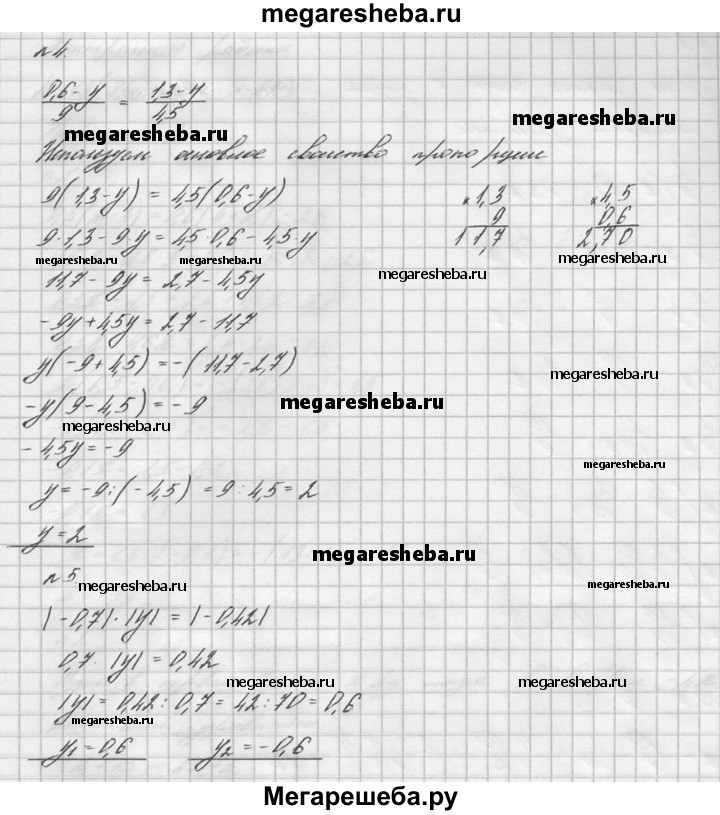 megaresheba.ru
№4.
(0,6-y)/9 = (1,3-y)/4,5
megaresheba.ru
megaresheba.ru
Используем основное свойство пропорции
9(1,3-y) = 4,5(0,6-y)
× 1,3
9
11,7
× 4,5
0,6
2,70
9·1,3-9y = 4,5·0,6-4,5·y
megaresheba.ru megaresheba.ru
megaresheba.ru
megaresheba.ru
11,7-9y = 2,7-4,5y
-9y+4,5y = 2,7-11,7
y(-9+4,5) = -(11,7-2,7)
megaresheba.ru
-y(9-4,5) = -9
megaresheba.ru
megaresheba.ru
-4,5y = -9
megaresheba.ru
y = -9:(-4,5) = 9:4,5 = 2
y = 2
megaresheba.ru
№5.
megaresheba.ru
megaresheba.ru
|-0,7|·|y| = |-0,42|
0,7·|y| = 0,42
megaresheba.ru
megaresheba.ru
|y| = 0,42:0,7 = 42:70 = 0,6
megaresheba.ru
y₁ = 0,6 y₂ = -0,6
megaresheba.ru
megaresheba.ru
Мегарешеба.ру